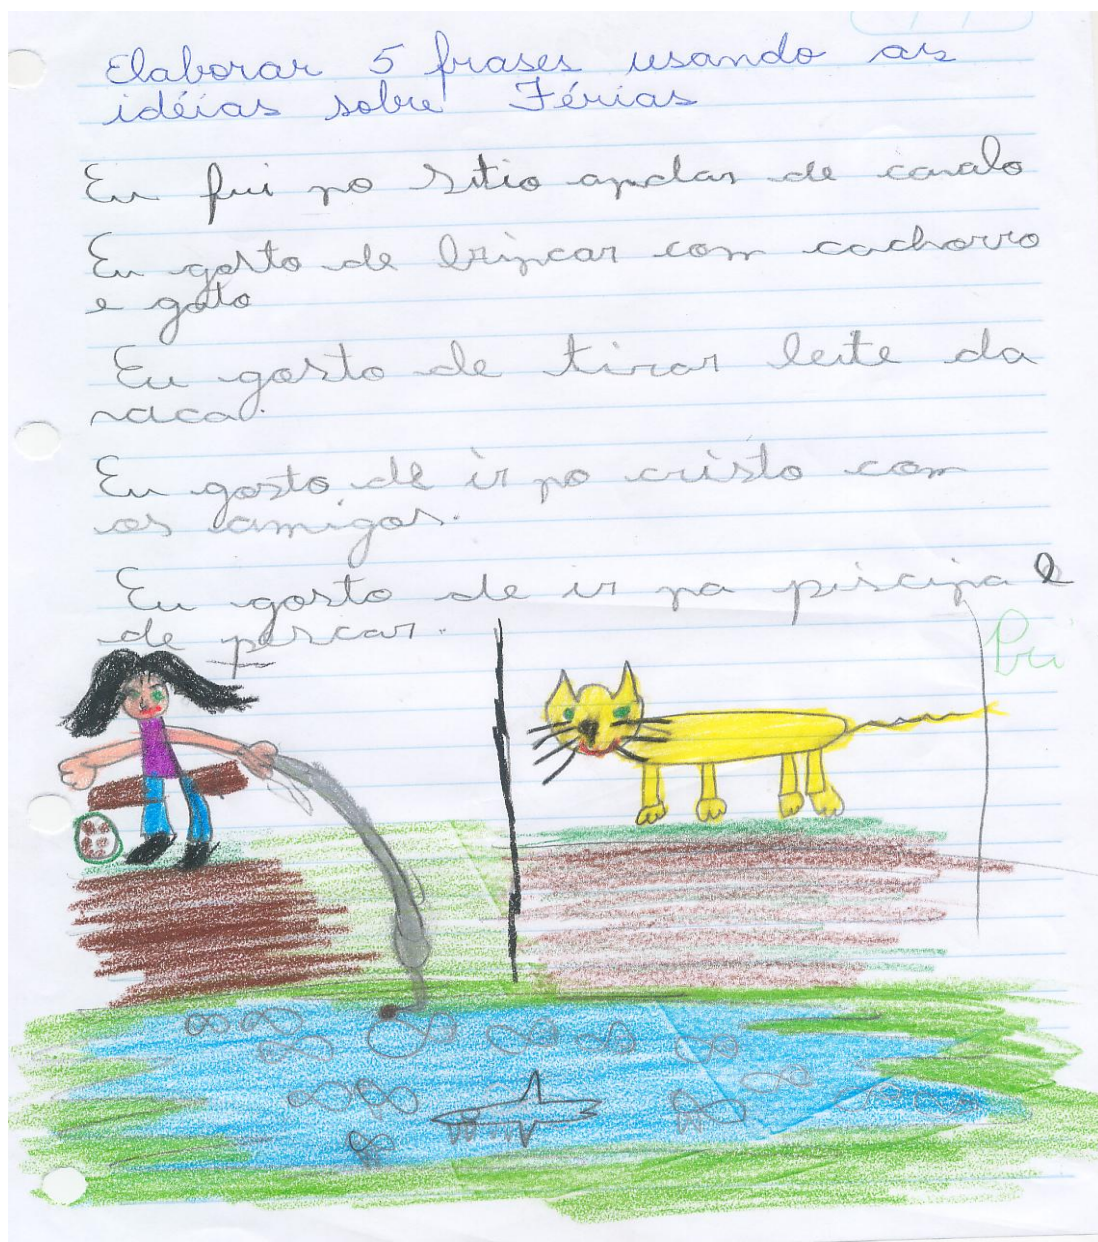 Elaborar 5 frases usando as
idéias sobre Férias
Eu fui no Sitio andar de cavalo
Eu gosto de brincar com cachorro
e gato
Eu gosto de tirar leite da
vaca.
Eu gosto de ir no cristo com
os amigos.
Eu gosto de ir na piscina e
de pescar.
Pri